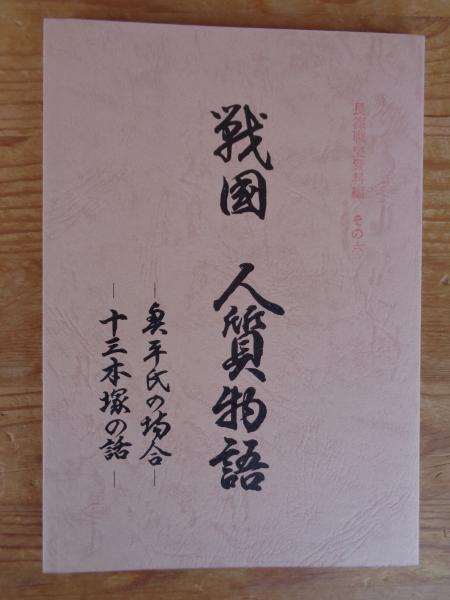 長篠戦史資料編 その六
戦國 人質物語
―奥平氏の場合―
―十三本塚の話―